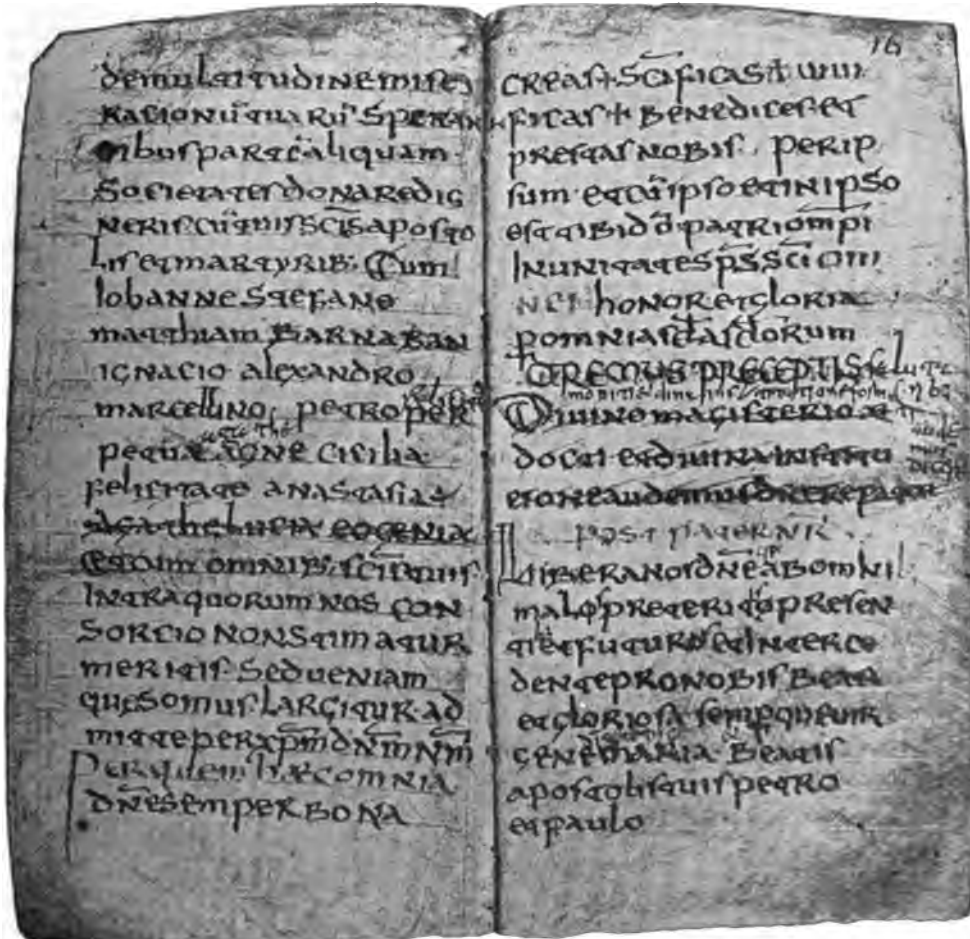 demultitudinemise
rationūtuarū sperant
tibus partēaliquam
societatesdonaredig
neris cūtuis s̄c̄is aposto
lis et martyrib· Cum
Iohanne Stefano
matthiam Barnaban
ignacio alexandro
marcellino petro per
petuae agne cicilia
felicitate anastasia
agathe lucia eogenia
etcum omnib· s̄c̄is tuis
intraquorum nos con
sorcio nonstimatur
meritis sed ueniam
quesomus largitur ad
mitte per x̄p̄m d̄n̄m n̄m̄
per quem haec omnia
dn̄e semper bona
16
creas s̄c̄ificas ✝ uiui
ficas ✝ benedices et
prestas nobis· per ip
sum et cū ipso et in ipso
est tibi d̄ō patri om̄pi
in unitate s̄p̄s s̄c̄i om
honor et gloria
p omnia s̄c̄l̄a s̄c̄l̄orum
OREMUS PRECEPTIS
Diuino magisterio
docti et diuina institu
post
Libera nos dn̄e ab omni
malo preterito presen
ti et futuro et interce
dente pro nobis beata
et gloriosa semperque uir
gene maria beatis
apostolis tuis petro
et paulo